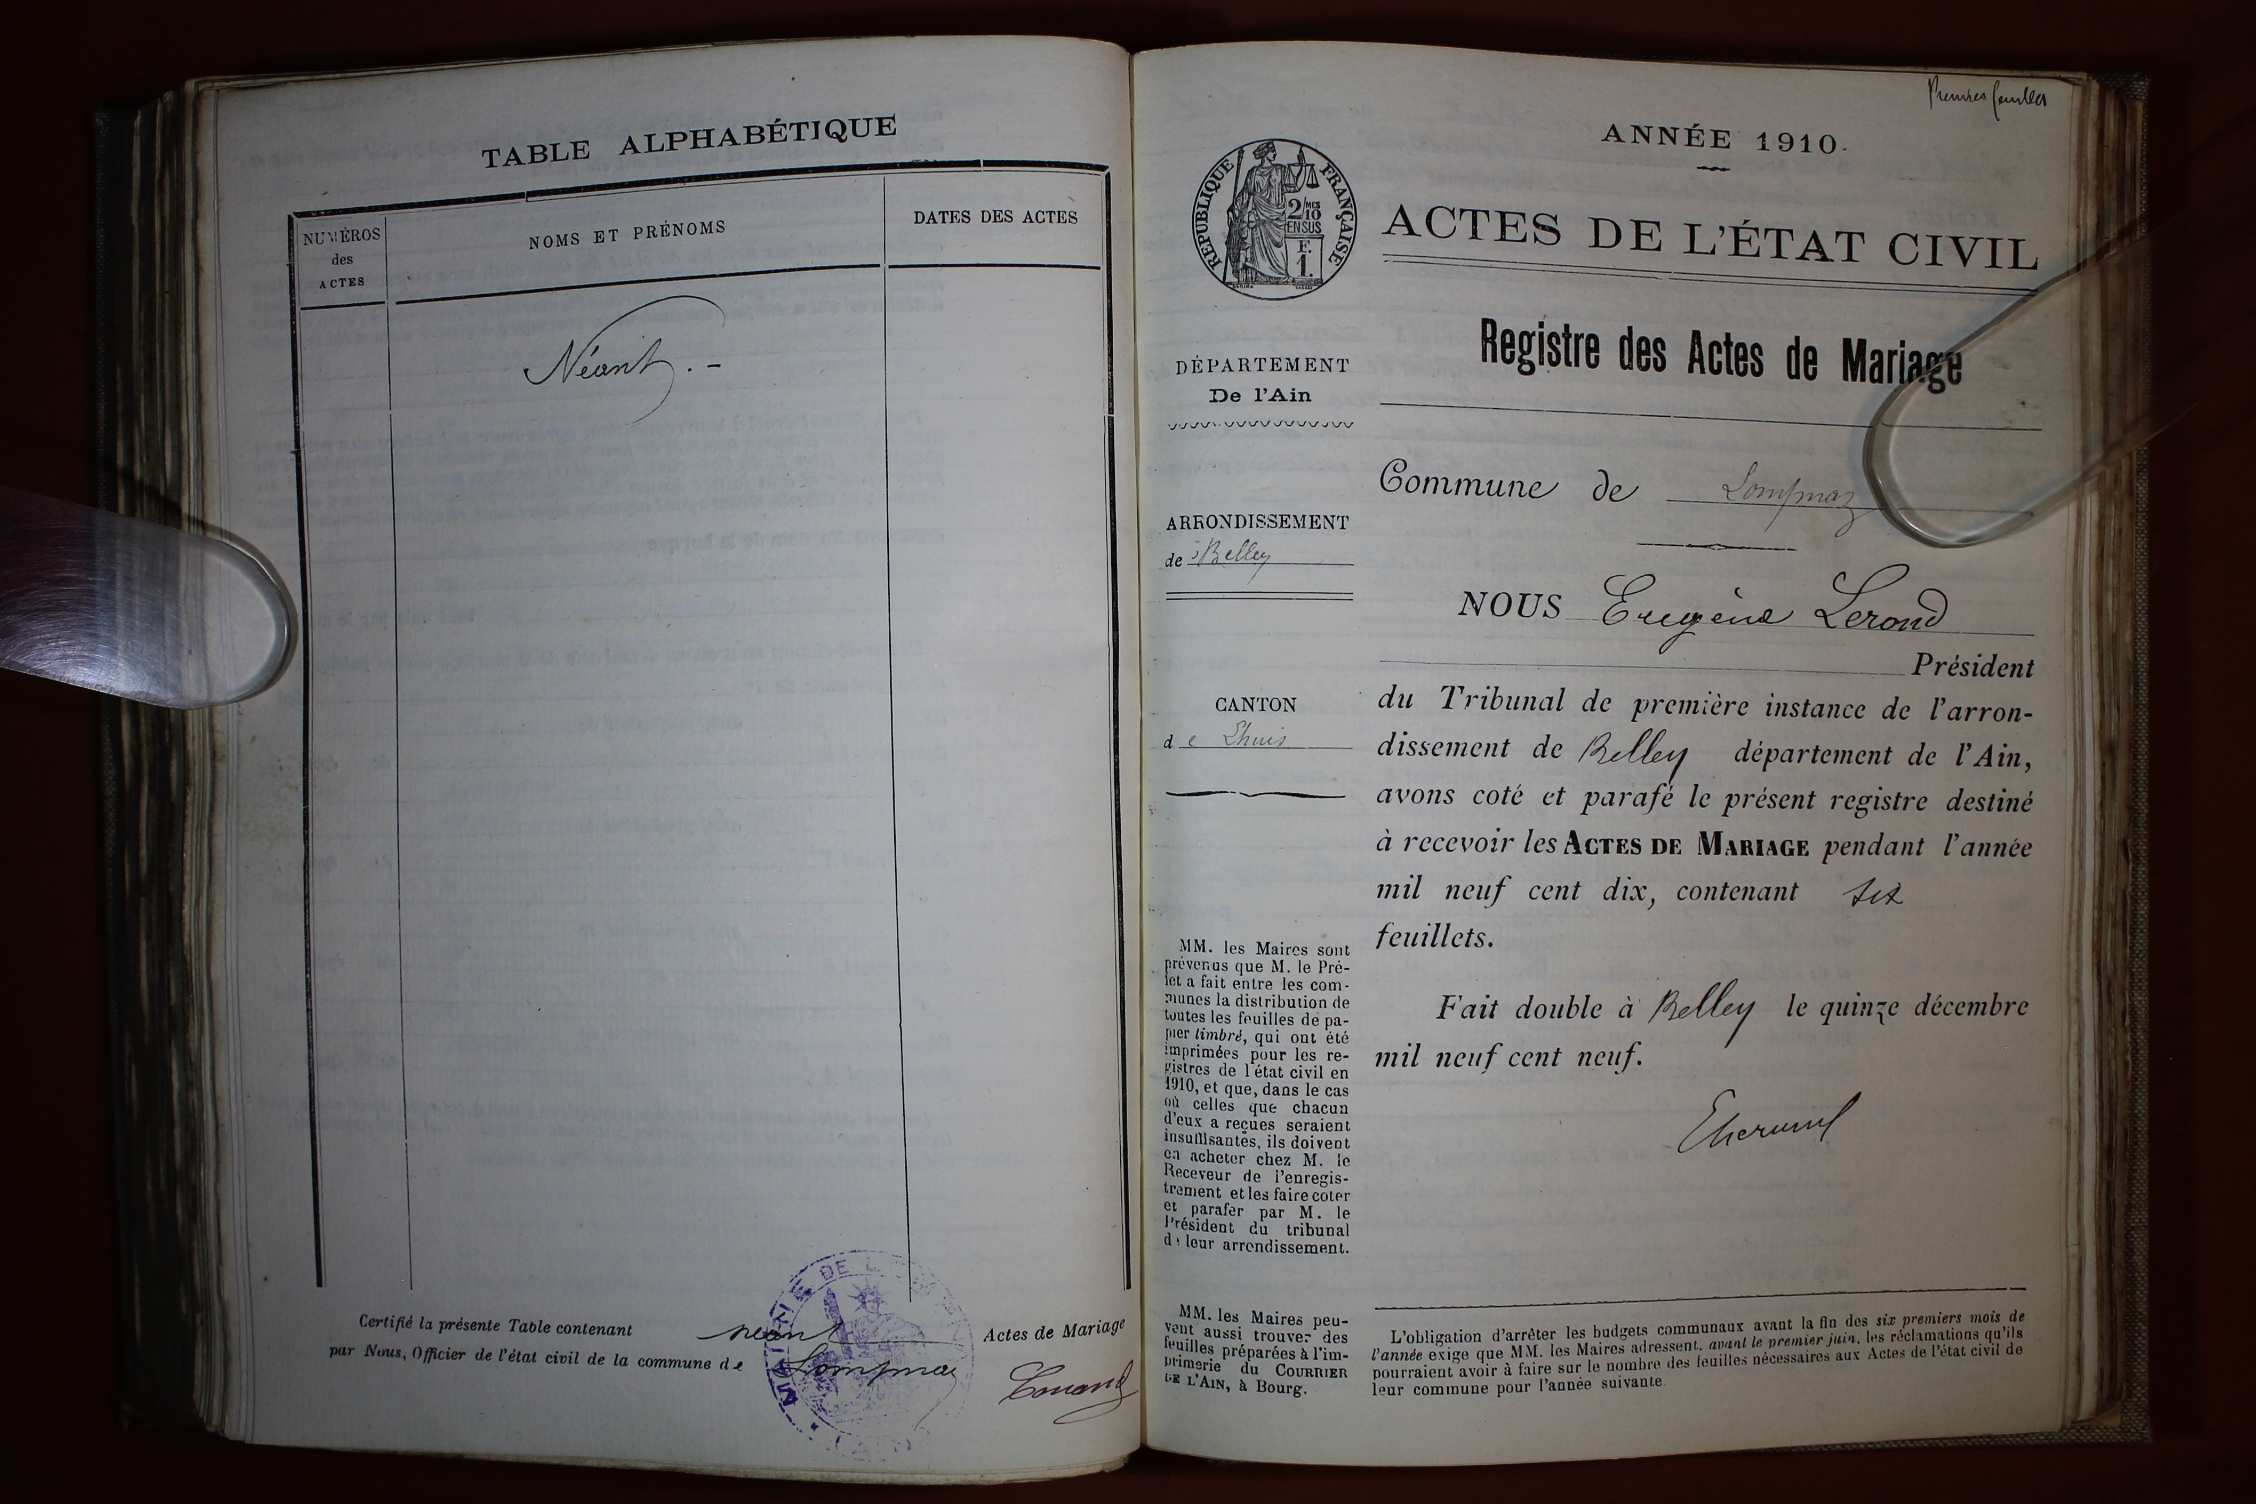 TABLE ALPHABÉTIQUE
NUMÉROS
des
ACTES
NOMS ET PRÉNOMS
DATES DES ACTES
Néant. -
Certifié la présente Table contenant néant Actes de Mariage
par Nous, Officier de l'état civil de la commune de Lompnaz
MAIRIE DE
ANNÉE 1910.
RÉPUBLIQUE FRANÇAISE
2/MES
10
EN SUS
F.
1.
ACTES DE L'ÉTAT CIVIL
Registre des Actes de Mariage
DÉPARTEMENT
De l'Ain
ARRONDISSEMENT
de Belley
CANTON
de Lhuis
MM. les Maires sont
prévenus que M. le Pré-
fet a fait entre les com-
munes la distribution de
toutes les feuilles de pa-
pier timbré, qui ont été
imprimées pour les re-
gistres de l'état civil en
1910, et que, dans le cas
où celles que chacun
d'eux a reçues seraient
insuffisantes, ils doivent
en acheter chez M. le
Receveur de l'enregis-
trement et les faire coter
et parafer par M. le
Président du tribunal
de leur arrondissement.
MM. les Maires peu-
vent aussi trouver des
feuilles préparées à l'im-
primerie du COURRIER
DE L'AIN, à Bourg.
Commune de Lompnaz
NOUS Eugène Lerond
Président
du Tribunal de première instance de l'arron-
dissement de Belley département de l'Ain,
avons coté et parafé le présent registre destiné
à recevoir les ACTES DE MARIAGE pendant l'année
mil neuf cent dix, contenant six
feuillets.
Fait double à Belley le quinze décembre
mil neuf cent neuf.
L'obligation d'arrêter les budgets communaux avant la fin des six premiers mois de
l'année exige que MM. les Maires adressent, avant le premier juin, les réclamations qu'ils
pourraient avoir à faire sur le nombre des feuilles nécessaires aux Actes de l'état civil de
leur commune pour l'année suivante.